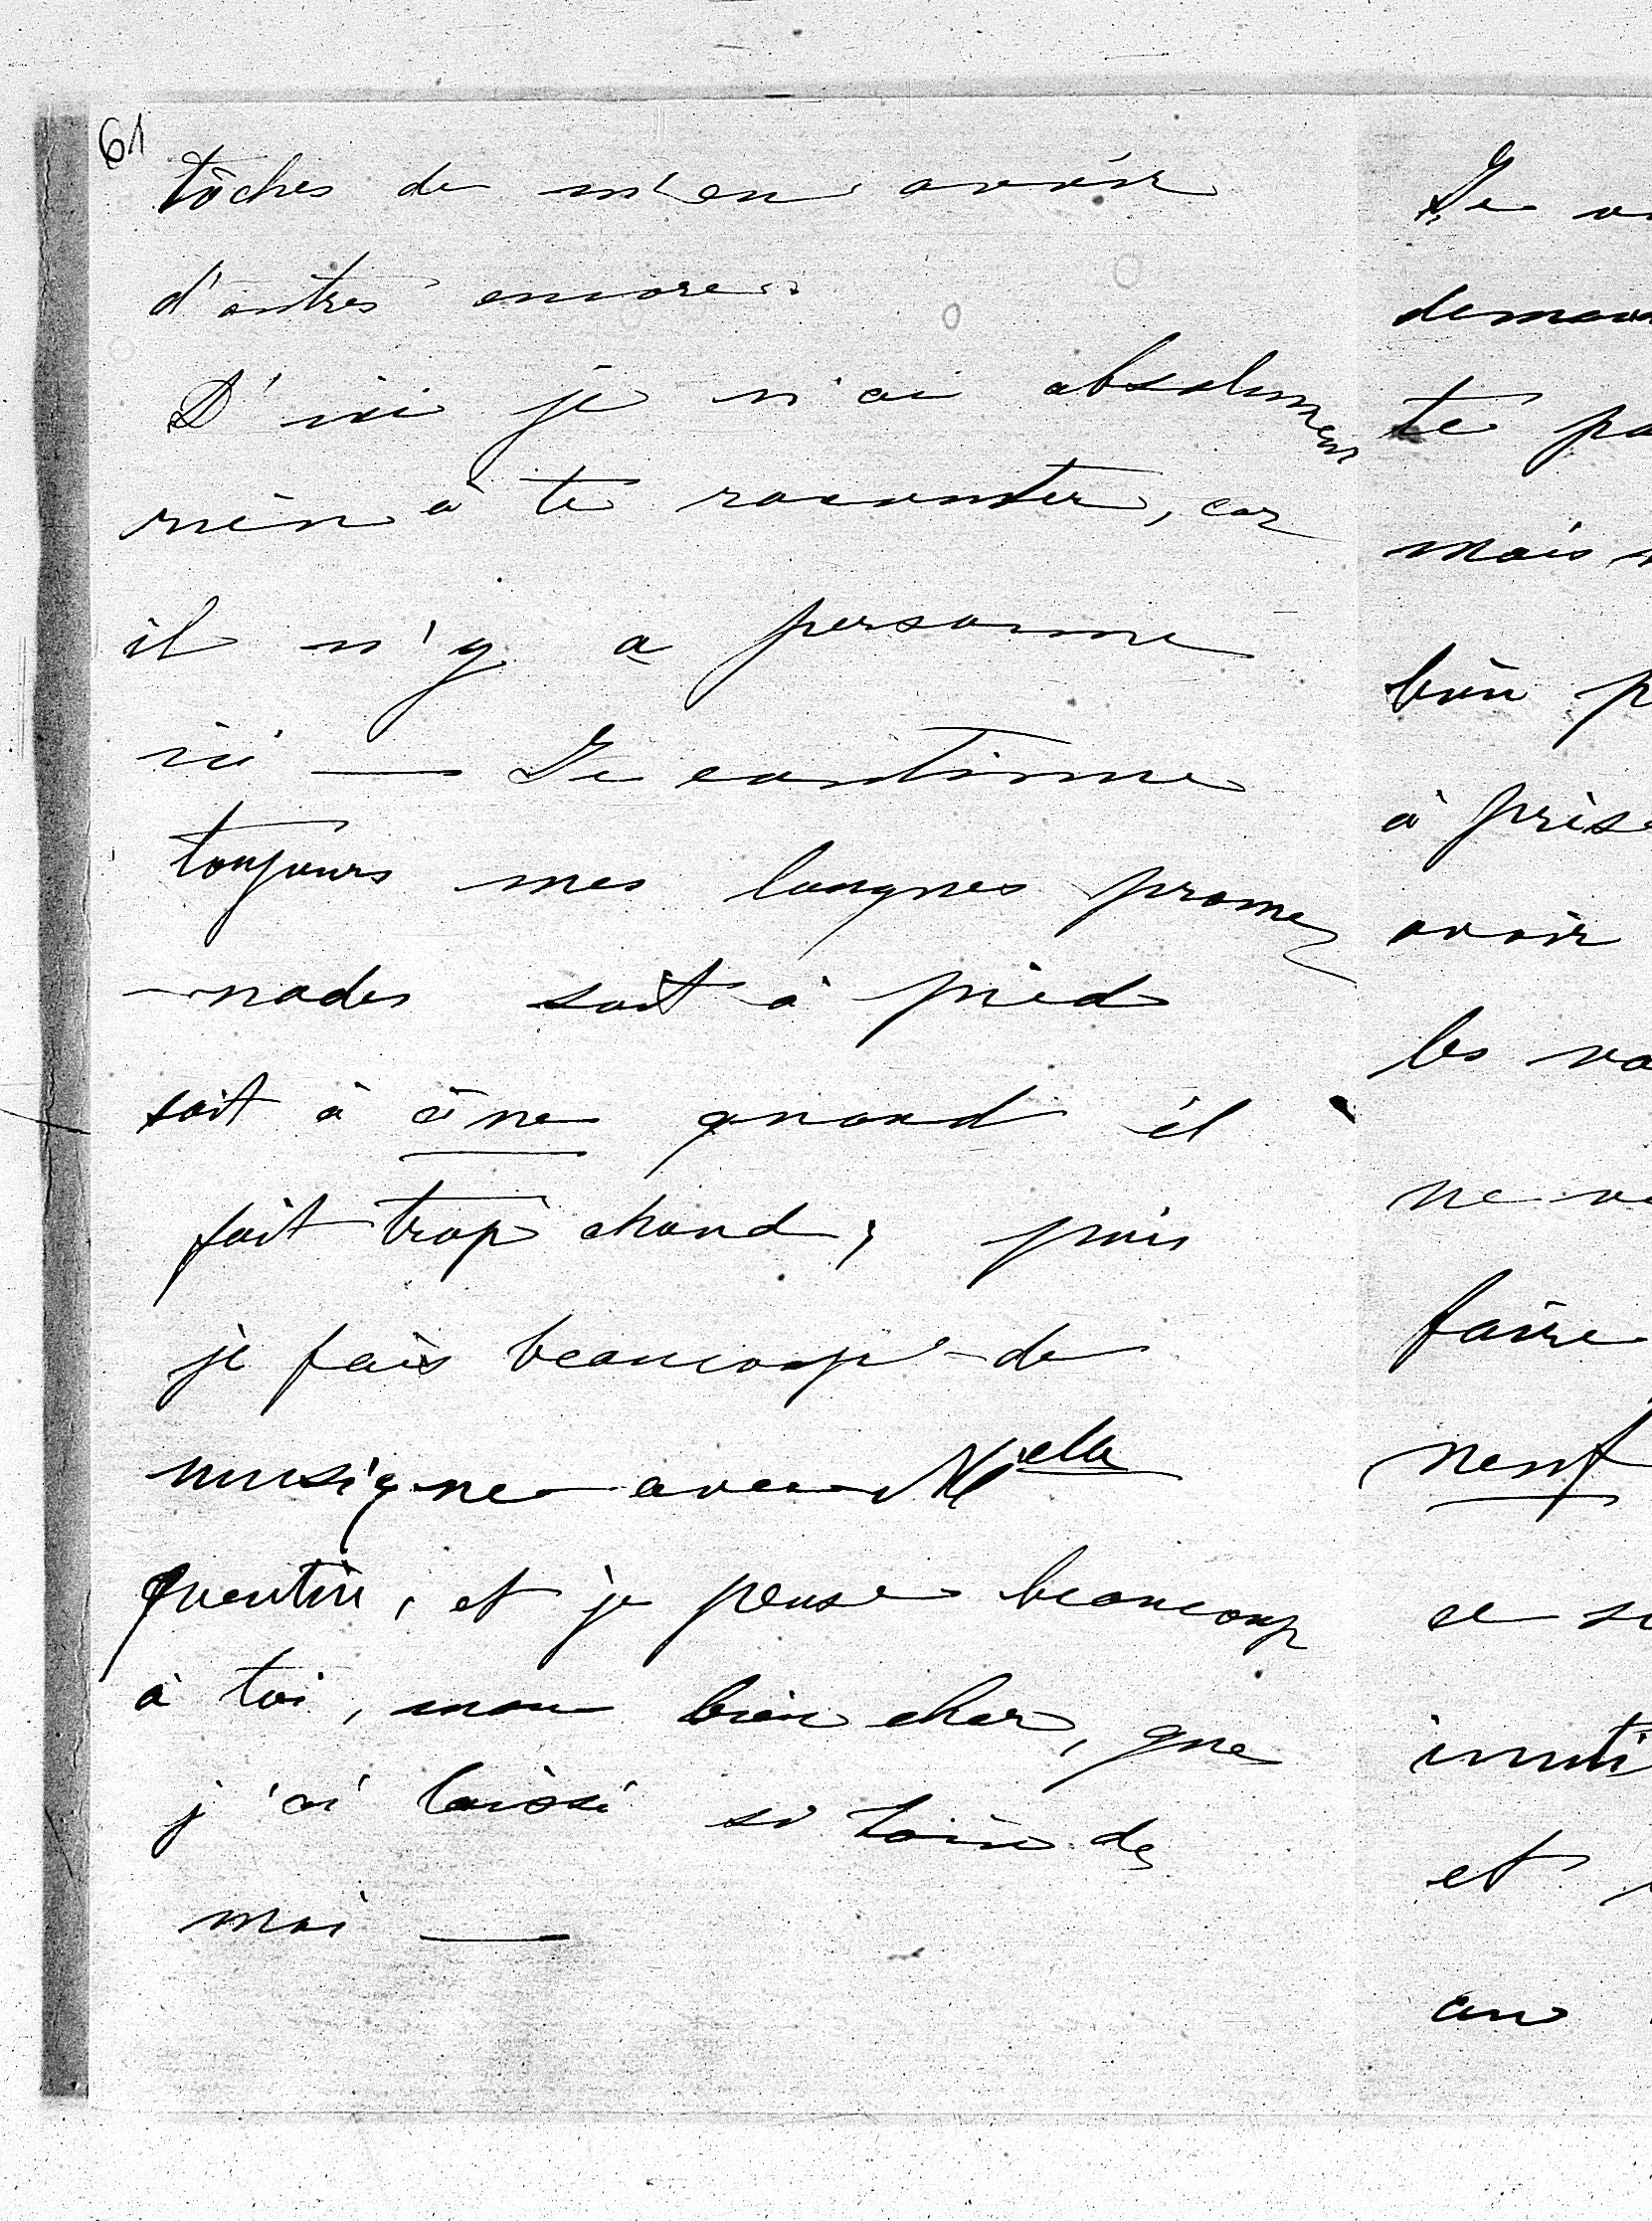 61
tâches de m'en avoir
d'autres encore..
D'ici je n'ai absolument
rien à te raconter, car
il n'y a personne
ici — Je continue
toujours mes longues prome
-nades soit à pied
soit à âne quand il
fait trop chaud, puis
je fais beaucoup de
musique avec Melle
Quentin, et je pense beaucoup
à toi, mon bien cher, que
j'ai laissé si loin de
moi —
Je
te
mais
bien
à
avoir
les
ne
faire
neuf
ce
et
au